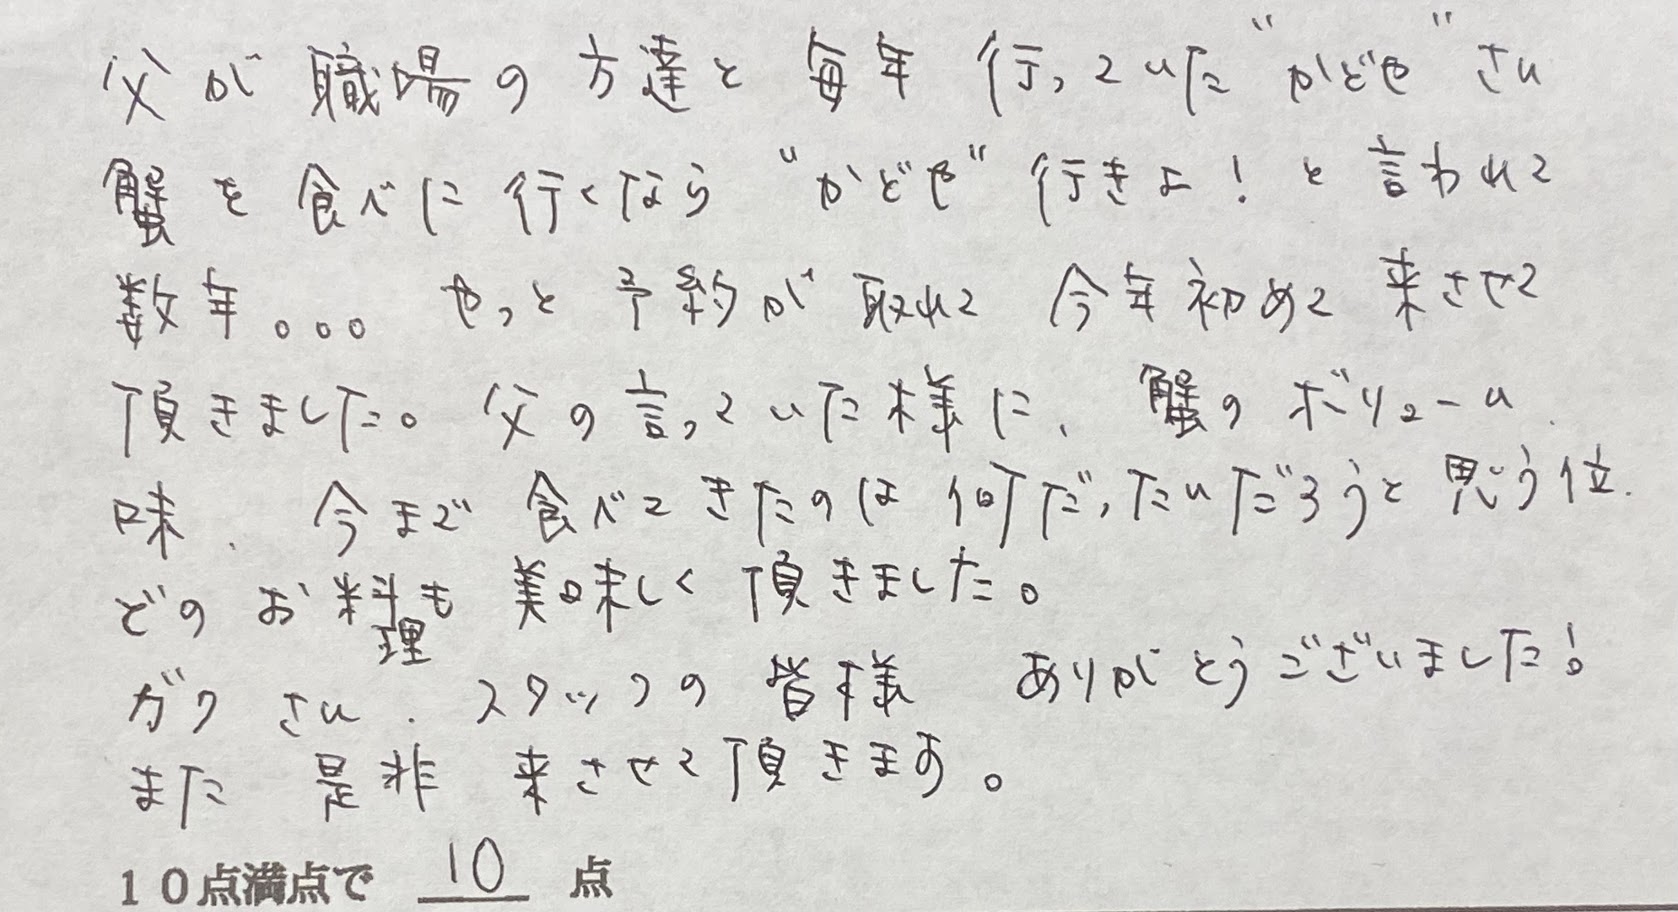 父が職場の方達と毎年行っていた"かどや"さん
蟹を食べに行くなら"かどや"行きよ！と言われて
数年。。。やっと予約が取れて今年初めて来させて
頂きました。父の言っていた様に、蟹のボリューム、
味、今まで食べてきたのは何だったんだろうと思う位、
どのお料理も美味しく頂きました。
ガクさん、スタッフの皆様 ありがとうございました！
また是非来させて頂きます。
10点満点で 10 点